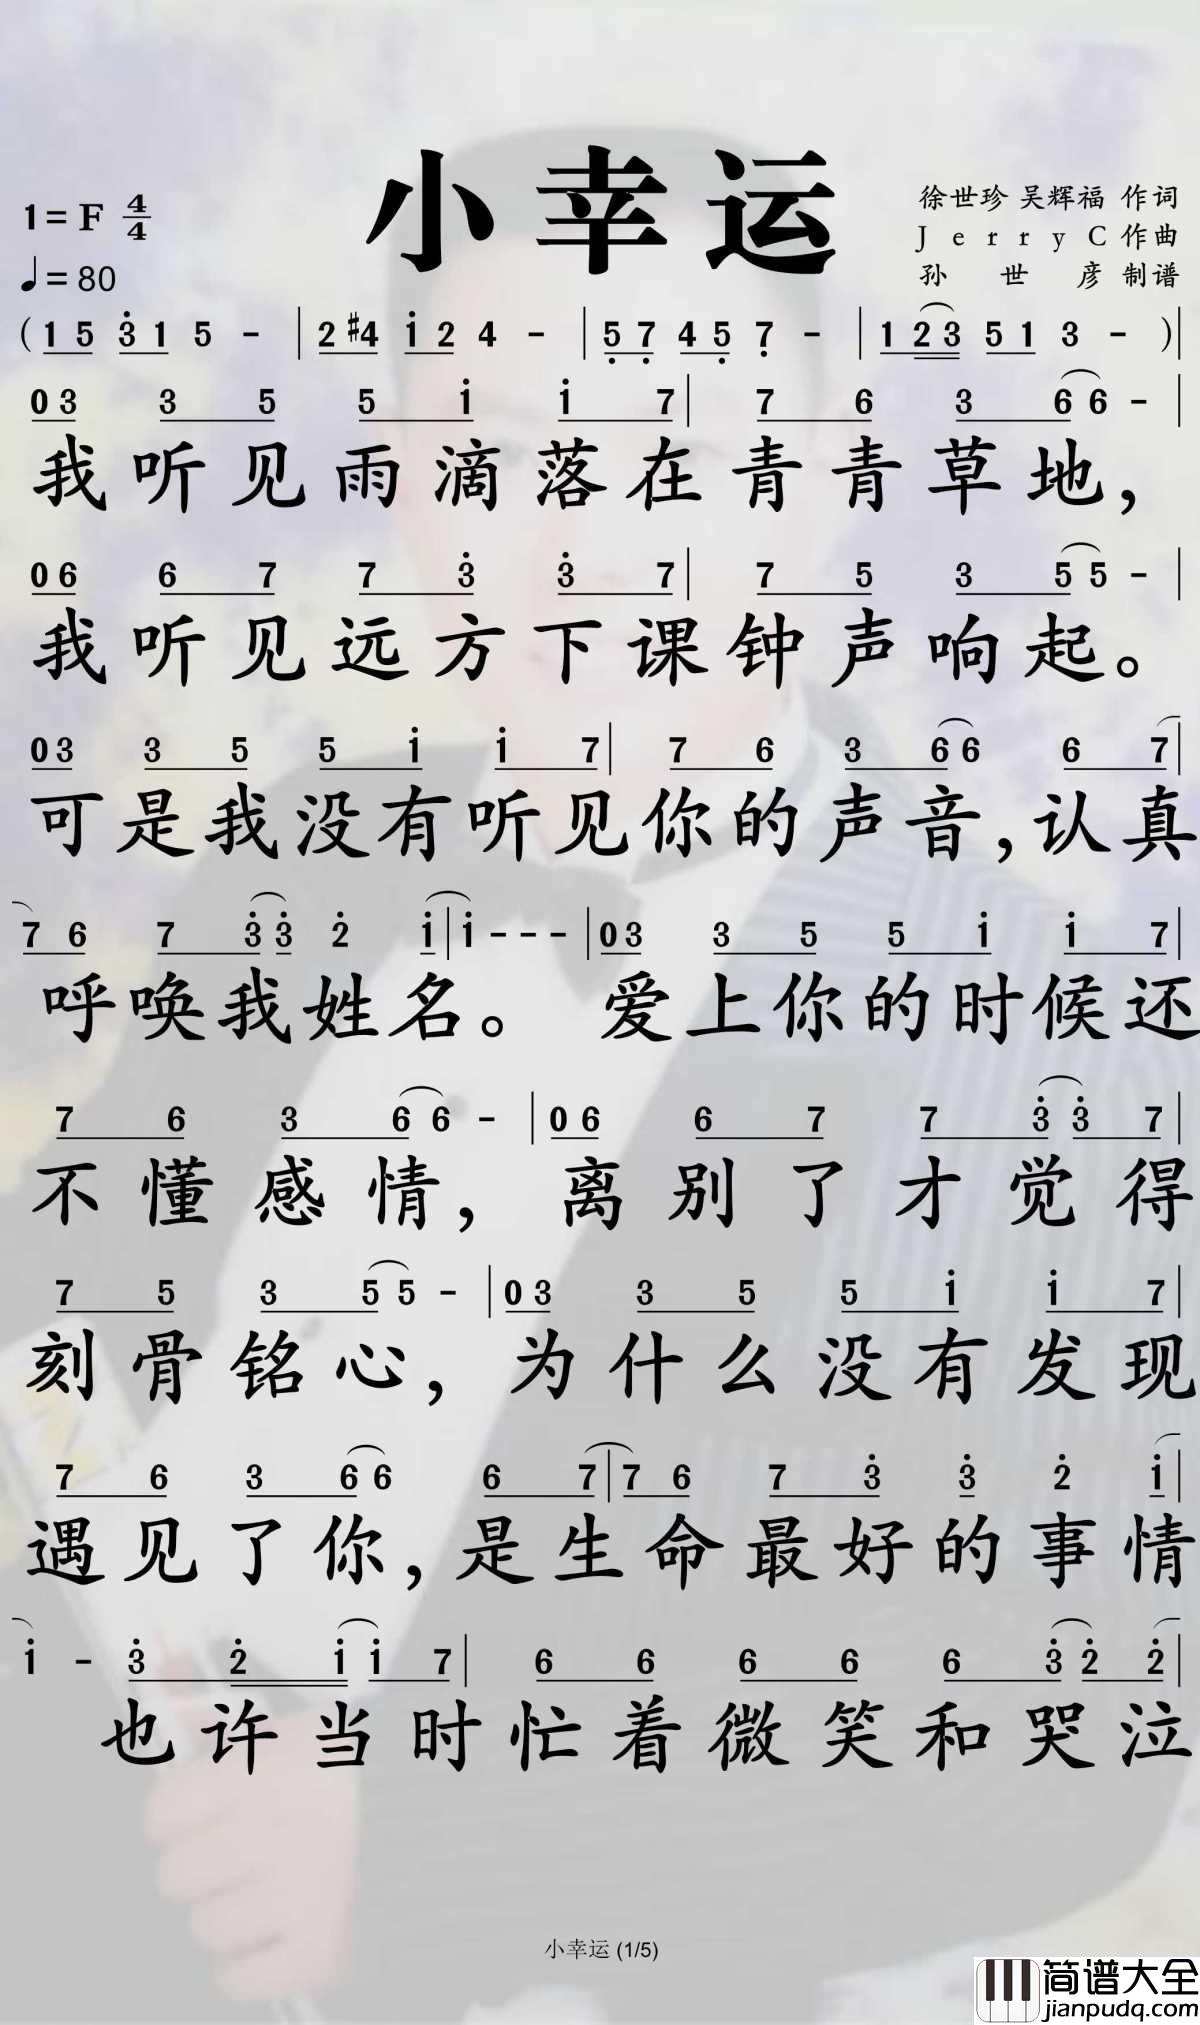 小幸运
1=F 4/4
♩=80
徐世珍 吴辉福 作词
JerryC 作曲
孙世彦 制谱
( 1 5 3̇ 1 5 - | 2 #4 1̇ 2 4 - | 5̣ 7̣ 4 5̣ 7̣ - | 1 2 3 5 1 3 - )|
0 3 3 5 5 1̇ 1̇ 7 | 7 6 3 6 6 - |
我听见雨滴落在青青草地，
0 6 6 7 7 3̇ 3̇ 7 | 7 5 3 5 5 - |
我听见远方下课钟声响起。
0 3 3 5 5 1̇ 1̇ 7 | 7 6 3 6 6 6 7 |
可是我没有听见你的声音，认真
7 6 7 3̇ 3̇ 2̇ 1̇ | 1̇ - - - | 0 3 3 5 5 1̇ 1̇ 7 |
呼唤我姓名。爱上你的时候还
7 6 3 6 6 - | 0 6 6 7 7 3̇ 3̇ 7 |
不懂感情，离别了才觉得
7 5 3 5 5 - | 0 3 3 5 5 1̇ 1̇ 7 |
刻骨铭心，为什么没有发现
7 6 3 6 6 6 7 | 7 6 7 3̇ 3̇ 2̇ 1̇ |
遇见了你，是生命最好的事情
1̇ - 3̇ 2̇ 1̇ 1̇ 7 | 6 6 6 6 6 3̇ 2̇ 2̇ |
也许当时忙着微笑和哭泣
小幸运 (1/5)
简谱大全
jianpudq.com